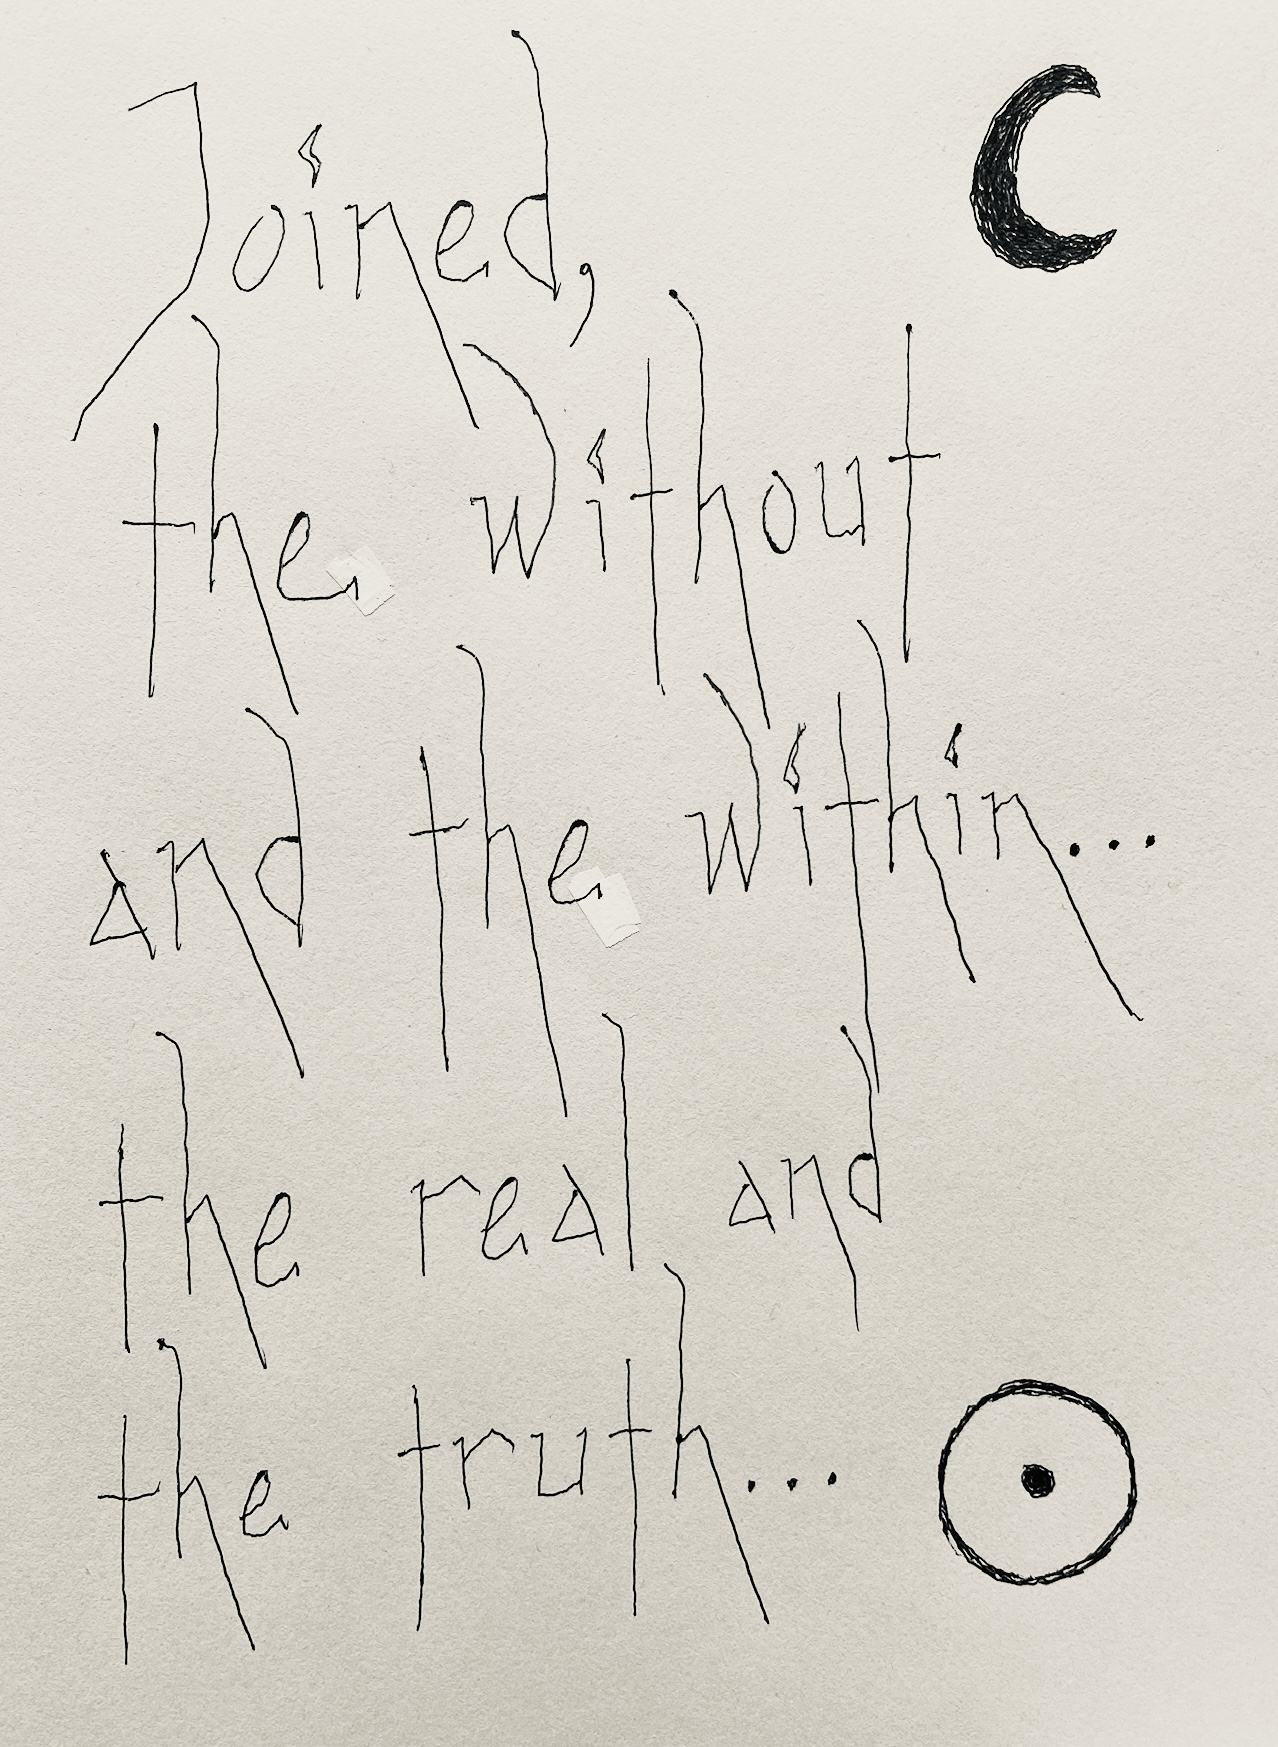 Joined,
the without
and the within...
the real and
the truth...